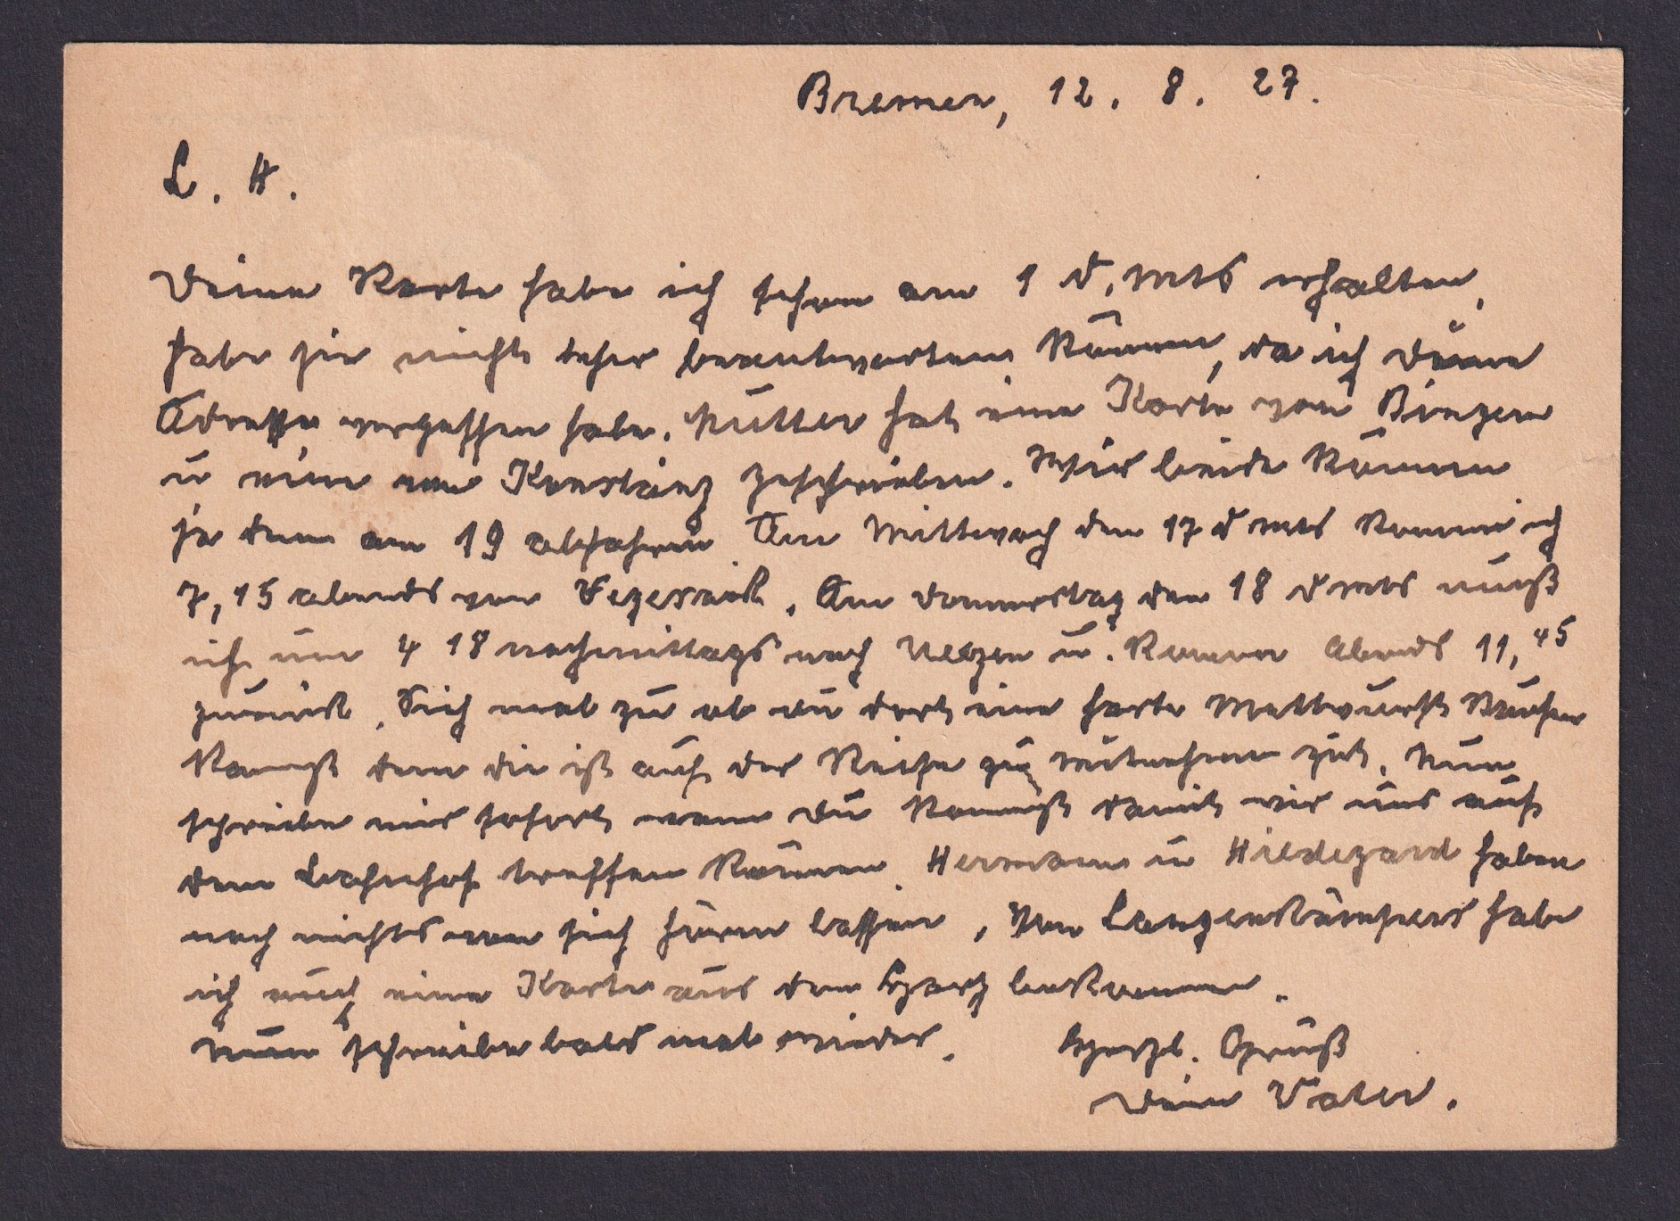 Bremen, 12. 8. 27.
L. H.
Deine Karte habe ich schon am 1 d. Mts erhalten,
habe sie nicht eher beantworten können, da ich Deine
Adresse vergessen habe. Mutter hat eine Karte von Bingen
u eine von Konstanz geschrieben. Wir beide können
ja dann am 19 abfahren Am Mittwoch den 17 d Mts komme ich
7,15 abends von Vegesack. Am Donnerstag den 18 d Mts muß
ich um 4 18 nachmittags nach Uelzen u. komme Abends 11,45
zurück. Sieh mal zu ob du dort eine harte Mettwurst kaufen
kannst denn die ist auf der Reise zu mitnehmen gut. Nun
schreibe mir sofort wann Du kommst damit wir uns auf
dem Bahnhof treffen können. Hermann u Hildegard haben
noch nichts von sich hören lassen. Von Langenkämpers habe
ich auch eine Karte aus dem Harz bekommen.
Nun schreibe bald mal wieder. Herzl. Gruß
Dein Vater.